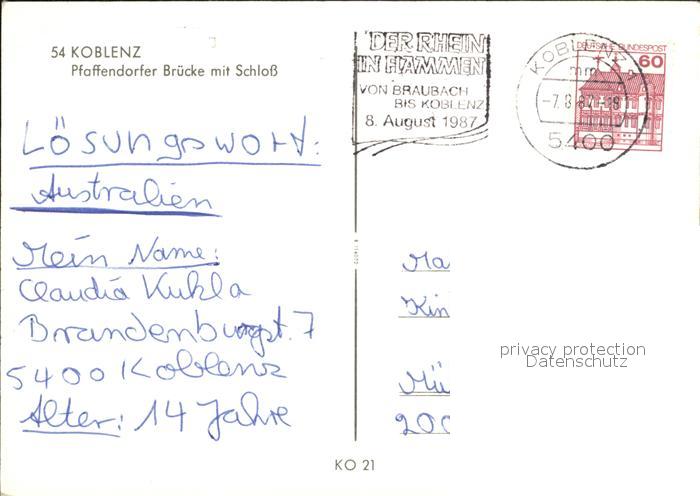 54 KOBLENZ
Pfaffendorfer Brücke mit Schloß
DER RHEIN
IN FLAMMEN
VON BRAUBACH
BIS KOBLENZ
8. August 1987
KOBLENZ 1
mm
-7.8.87-18
5400
DEUTSCHE BUNDESPOST
60
Lösungswort:
Australien
Mein Name:
Claudia Kukla
Brandenburgst. 7
5400 Koblenz
Alter: 14 Jahre
Ma
Kin
Mü
200
privacy protection
Datenschutz
KO 21